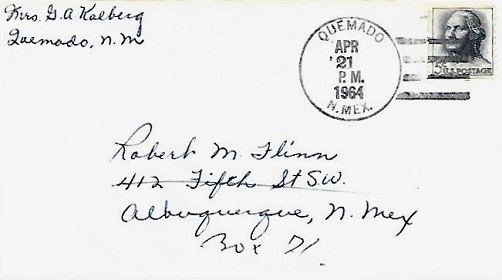 Mrs. G. A Kalberg
Quemado, N. M
QUEMADO
APR
21
P. M.
1964
N. MEX.
5¢ U.S. POSTAGE
Robert M. Flinn
412 Fifth St S.W.
Albuquerque, N. Mex
Box 71